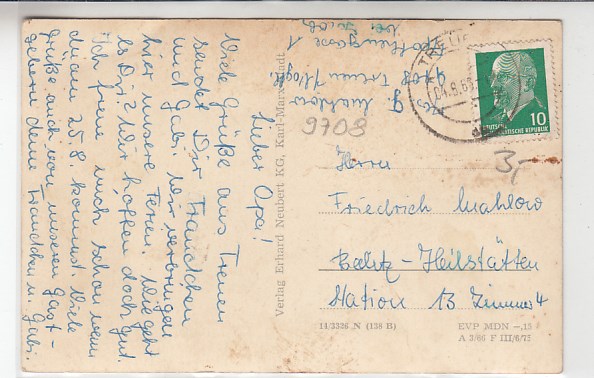 Lieber Opa!
Viele Grüße aus Treuen
sendet Dir Fränzchen
und Gabi. Wir verbringen
hier unsere Ferien. Wie geht
es Dir? Wir hoffen doch gut.
Ich freue mich schon wenn
du am 25.8. kommst. Viele
Grüße auch von unseren Gast-
gebern deine Fränzchen u. Gabi.
Verlag Erhard Neubert KG, Karl-Marx-Stadt
G. Mahlow
9708 Treuen Vogtl.
1
9708
TREUEN
DEUTSCHE
DEMOKRATISCHE REPUBLIK
10
3,-
Herrn
Friedrich Mahlow
Beelitz-Heilstätten
Station B Zimmer 4
14/3326 N (138 B)
EVP MDN –,15
A 3/86 F III/6/75